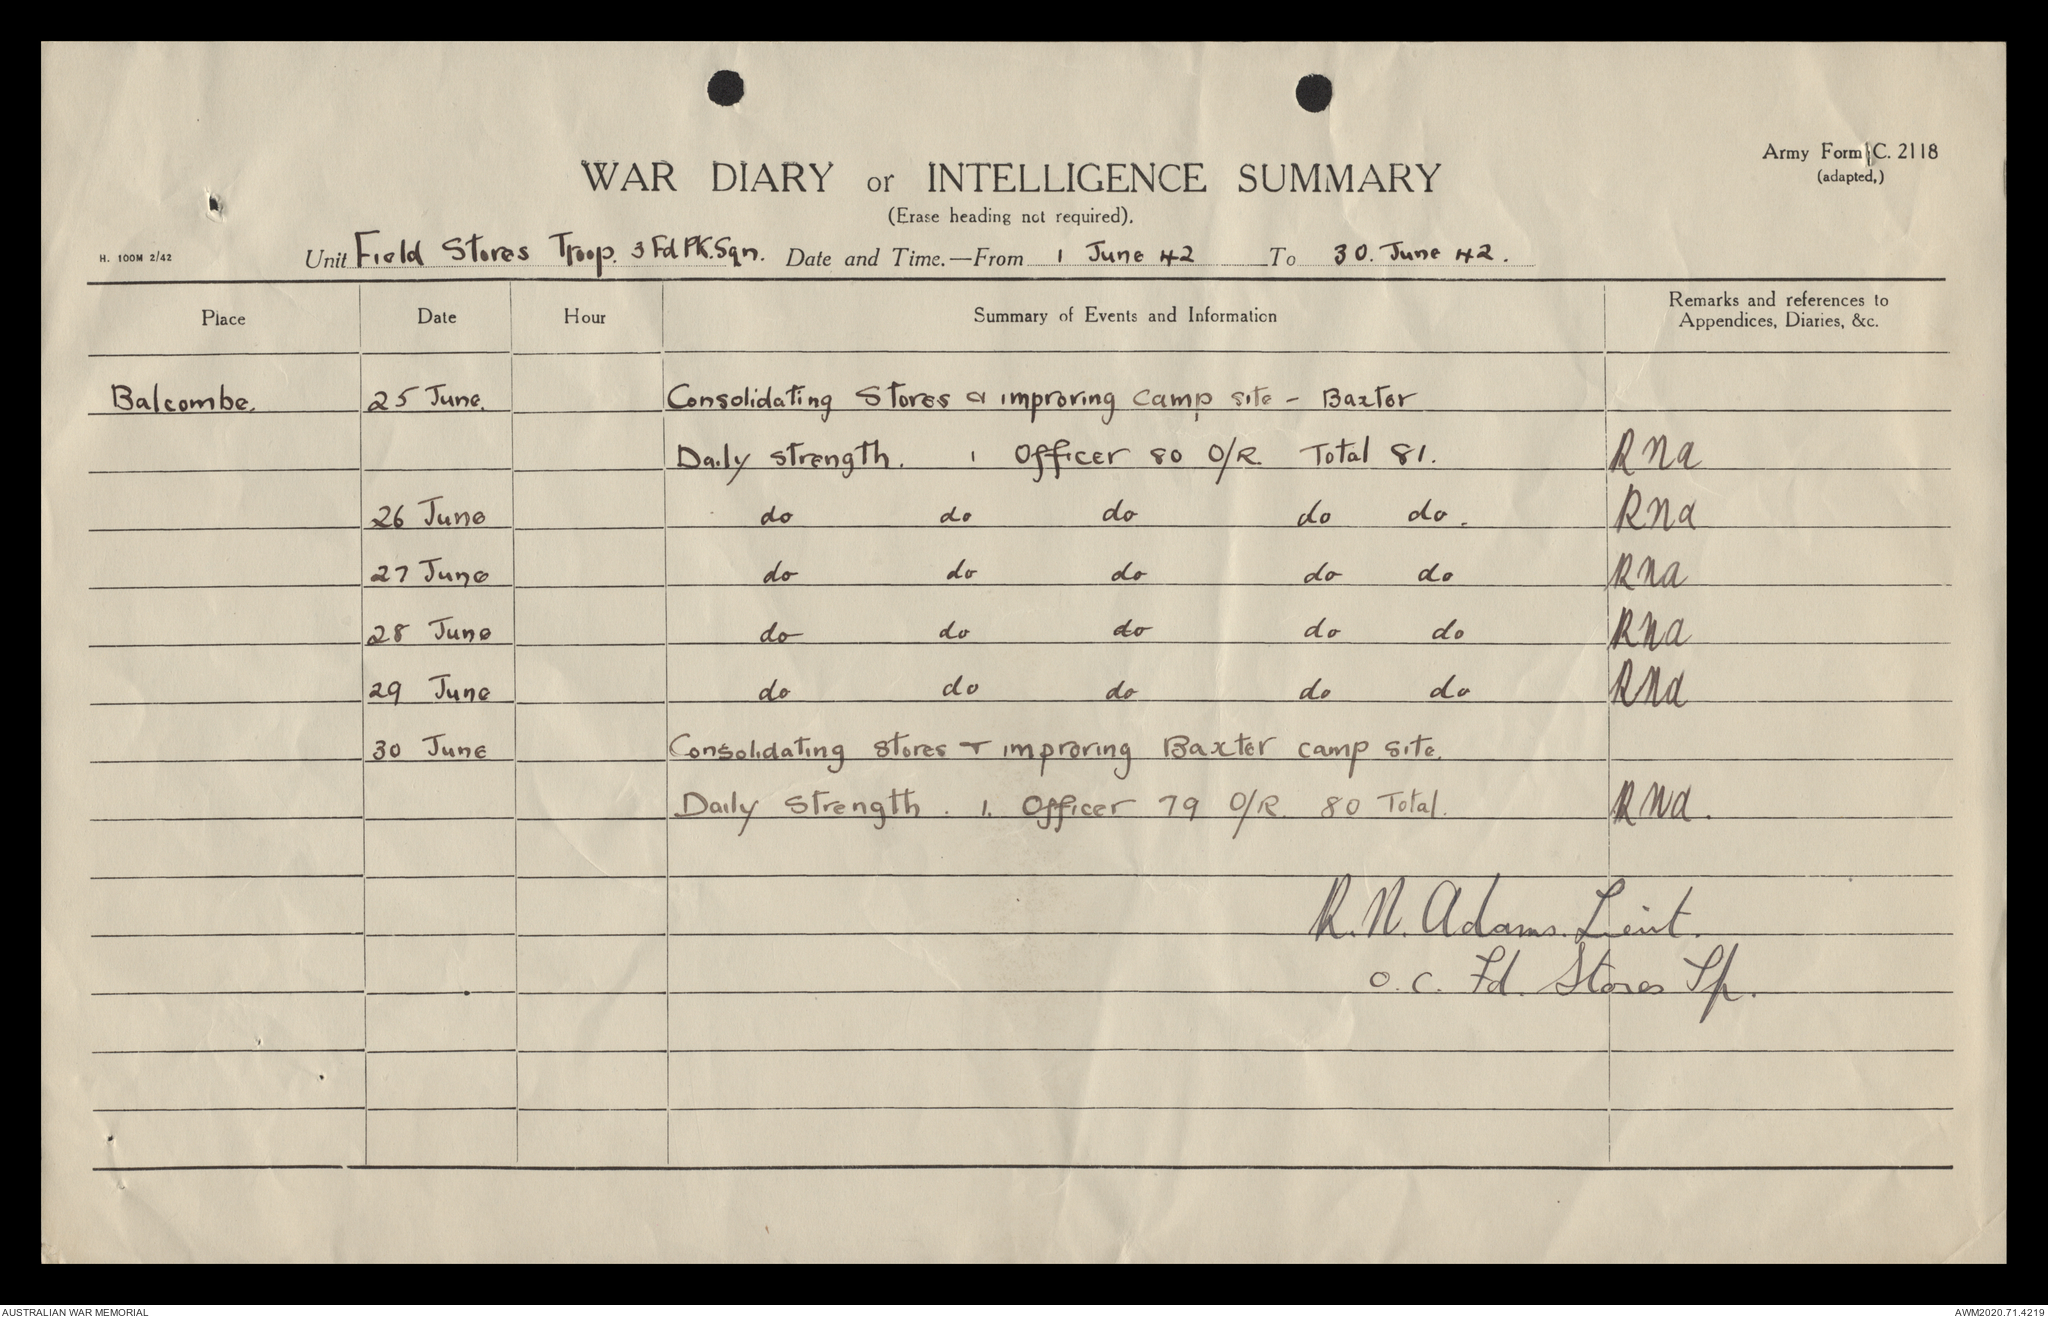 Army Form C. 2118
(adapted,)
WAR DIARY or INTELLIGENCE SUMMARY
(Erase heading not required).
H. 100M 2/42
Unit Field Stores Troop. 3 Fd PK. Sqn. Date and Time.—From 1 June 42 To 30. June 42.
Place Date Hour Summary of Events and Information Remarks and references to Appendices, Diaries, &c.
Balcombe. 25 June. Consolidating Stores & improving camp site – Baxter
Daily strength. 1 Officer 80 O/R. Total 81. RNA
26 June do do do do do. RNA
27 June do do do do do RNA
28 June do do do do do RNA
29 June do do do do do RNA
30 June Consolidating stores & improving Baxter camp site.
Daily Strength. 1. Officer 79 O/R. 80 Total. RNA.
R.N. Adams. Lieut.
O.C. Fd. Stores Tp.
AUSTRALIAN WAR MEMORIAL AWM2020.71.4219